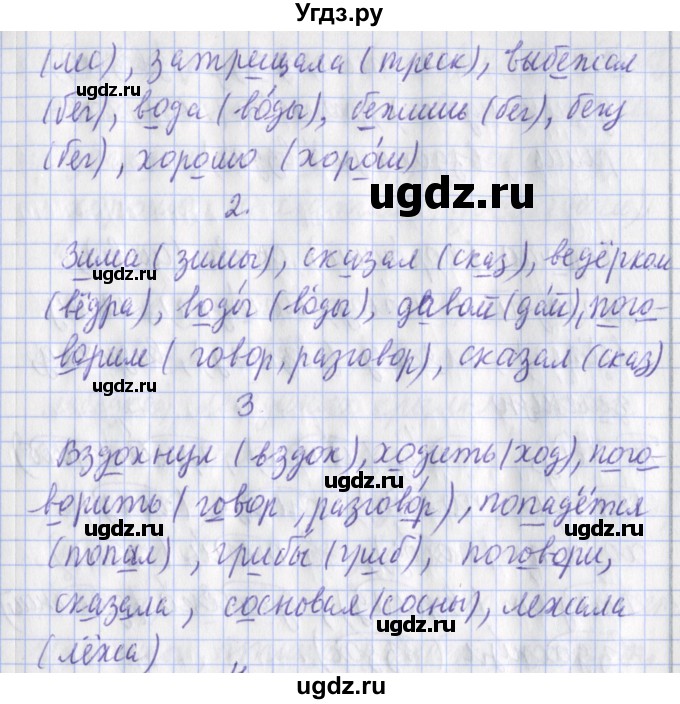 Угдз.ру
(лес), затрещала (треск), выбежал
(бег), вода (во́ды), бежишь (бег), бегу
(бег), хорошо (хоро́ш)
ugdz.ru ugdz.ru
2.
Зима (зимы), сказал (сказ), ведёрком
(вёдра), воды́ (во́ды), давай (да́й), пого-
ugdz.ru ugdz.ru
ворим (говор, разговор), сказал (сказ)
ugdz.ru
3
Вздохнул (вздох), ходить (ход), пого-
ugdz.ru
ворить (говор, разгово́р), попадётся
ugdz.ru ugdz.ru
(попал), грибы (гриб), поговори,
ugdz.ru
сказала, сосновая (сосны), лежала
ugdz.ru
(лёжа)
ugdz.ru